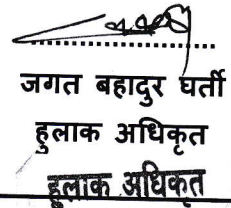 जगत बहादुर घर्ती
हुलाक अधिकृत
हुलाक अधिकृत